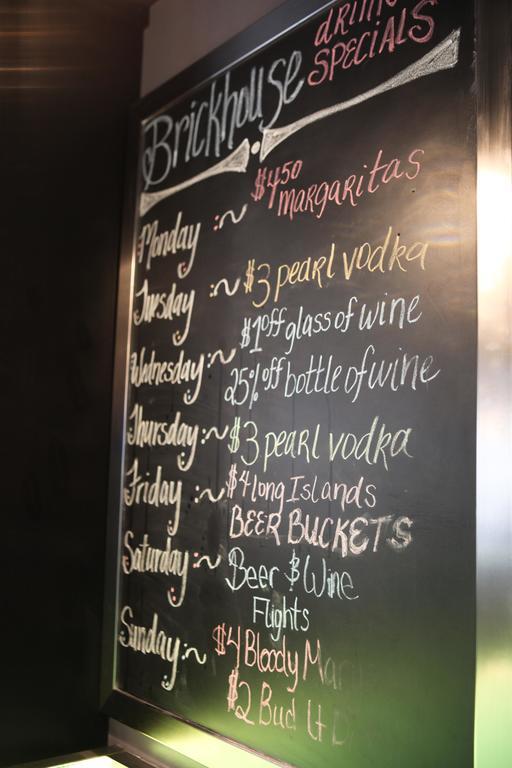 Brickhouse
DRINK
SPECIALS
Monday :~ $4.50
MARGARITAS
Tuesday :~ $3 pearl vodka
Wednesday :~ $1 off glass of wine
25% off bottle of wine
Thursday :~ $3 pearl vodka
Friday :~ $4 long Islands
BEER BUCKETS
Saturday :~ Beer $ Wine
Flights
Sunday :~ $4 Bloody
$2 Bud Lt